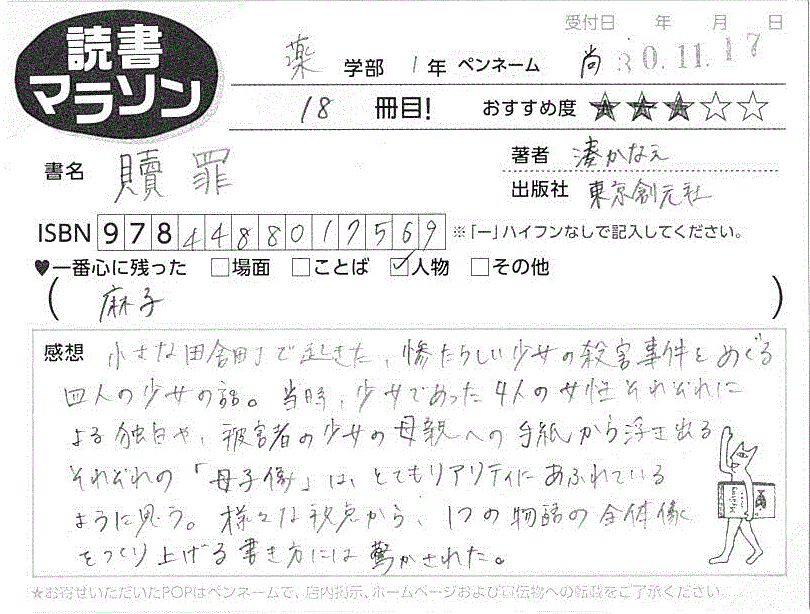 読書
マラソン
受付日 年 月 日
30.11.17
薬 学部 1年 ペンネーム 尚
18 冊目! おすすめ度 ★★★☆☆
書名 贖罪
著者 湊かなえ
出版社 東京創元社
ISBN 9784488017569 ※「ー」ハイフンなしで記入してください。
♥一番心に残った □場面 □ことば ☑人物 □その他
( 麻子 )
感想 小さな田舎町で起きた、惨たらしい少女の殺害事件をめぐる
四人の少女の話。当時、少女であった4人の女性それぞれに
よる独白や、被害者の少女の母親への手紙から浮き出る
それぞれの「母子像」は、とてもリアリティにあふれている
ように思う。様々な視点から、1つの物語の全体像
をつくり上げる書き方には驚かされた。
★お寄せいただいたPOPはペンネームで、店内掲示、ホームページおよび宣伝物への転載をご了承ください。